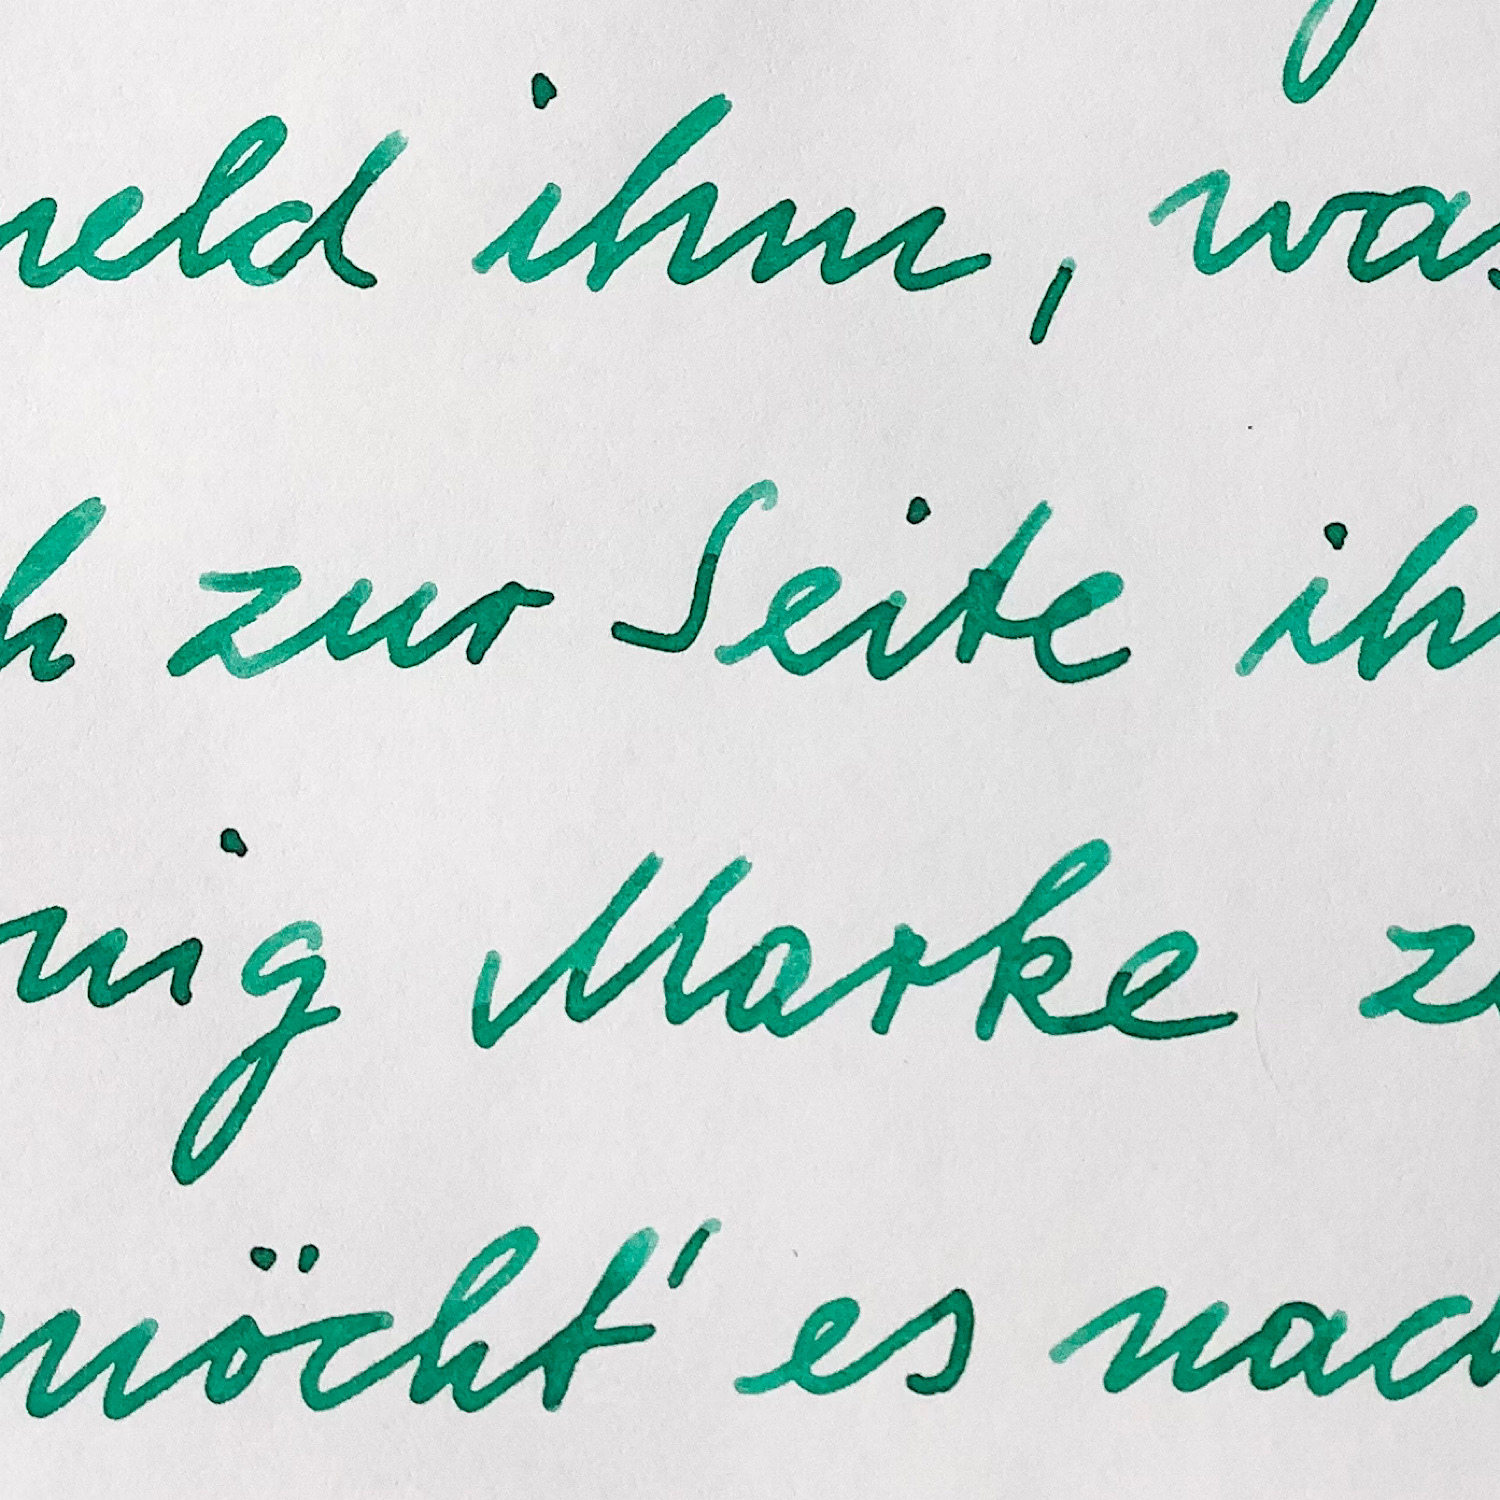 meld ihm, was
h zur Seite ih
nig Marke zu
möcht' es nach